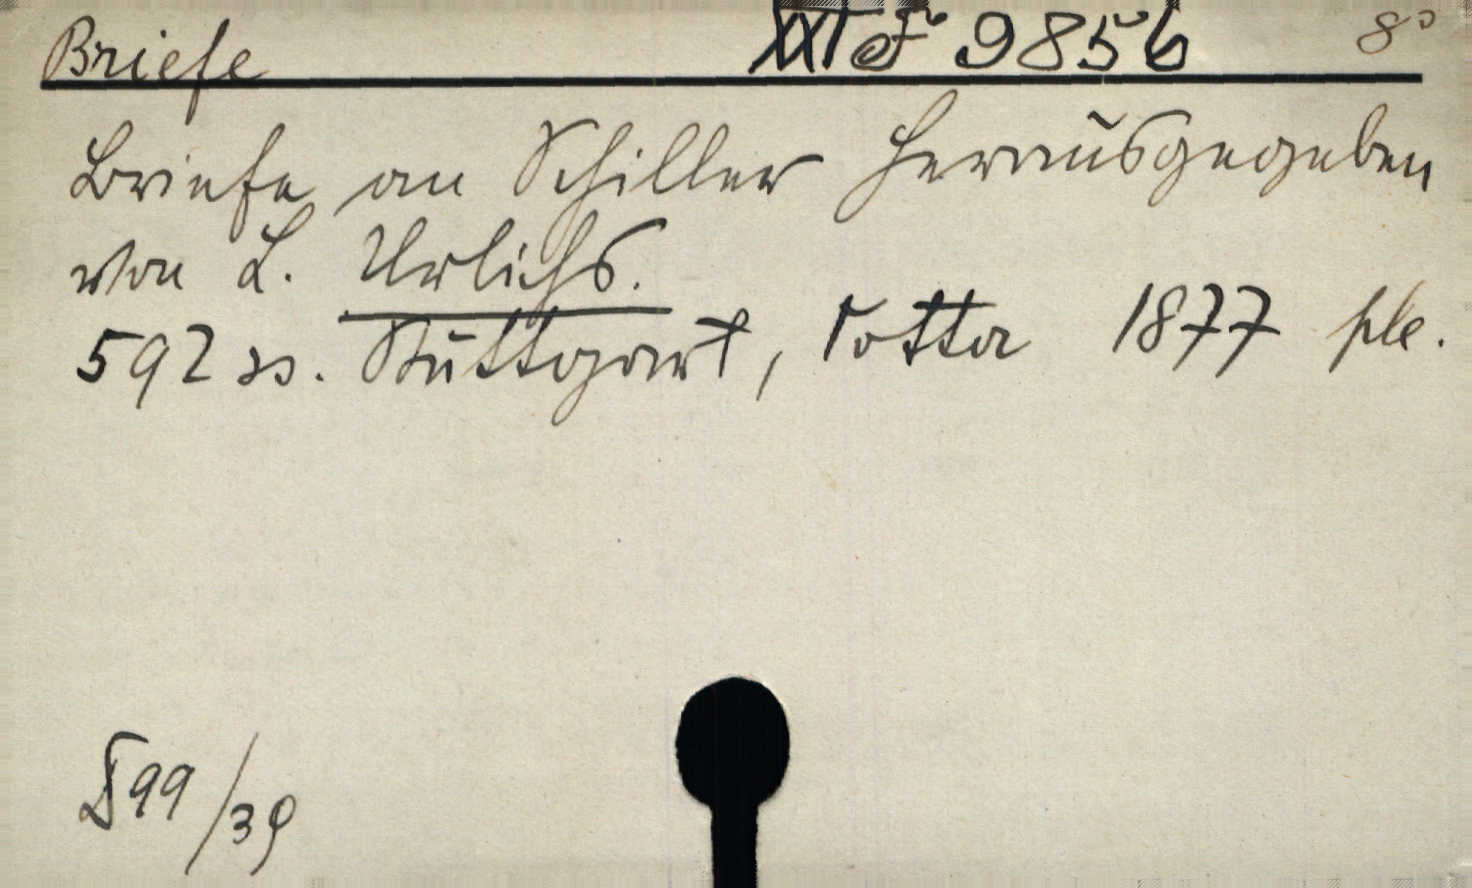 Briefe XXI F 9856 8°
Briefe an Schiller herausgegeben
von L. Urlichs.
592 ss. Stuttgart, Cotta 1877 ple.
599/39